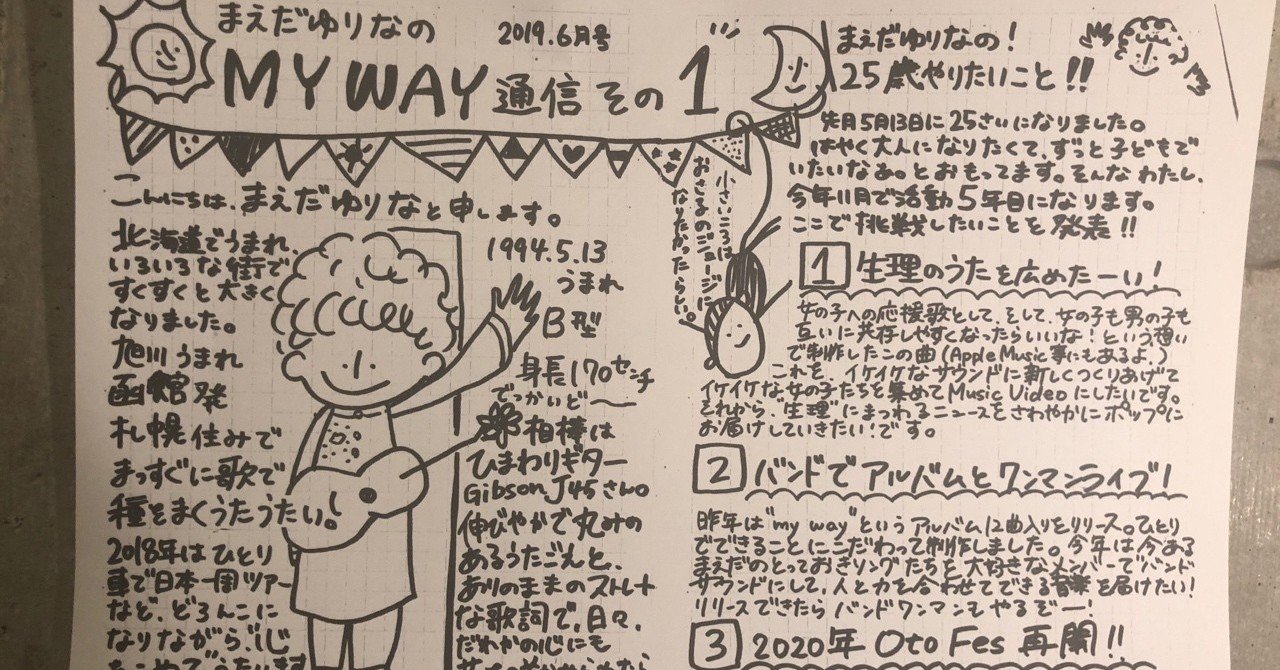 まえだゆりなの
2019.6月号
MY WAY 通信 その1
こんにちは、まえだゆりなと申します。
北海道でうまれ、
いろいろな街で
すくすくと大きく
なりました。
旭川うまれ
函館発
札幌住みで
まっすぐに歌で
種をまくうたうたい。
2018年はひとり
車で日本一周ツアー
など、どろんこに
なりながら、
1994.5.13
うまれ
B型
身長170センチ
でっかいどー
相棒は
ひまわりギター
Gibson J45さん。
伸びやかで丸みの
あるうたごえと、
ありのままのストレート
な歌詞で、日々、
だれかの心にも
小さいころは
おさるのジョージに
なりたかったらしい。
まえだゆりなの!
25歳やりたいこと!!
先月5月13日に25さいになりました。
はやく大人になりたくて、ずっと子どもで
いたいなあ。とおもってます。そんなわたし、
今年11月で活動5年目になります。
ここで挑戦したいことを発表!!
1 生理のうたを広めたーい!
女の子への応援歌として、そして、女の子も男の子も
互いに共存しやすくなったらいいな!という想い
で制作したこの曲(Apple Music等にもあるよ。)
これを、イケイケなサウンドに新しくつくりあげて
イケイケな女の子たちを集めてMusic Videoにしたいです。
それから、"生理"にまつわるニュースをさわやかにポップに
お届けしていきたい!です。
2 バンドでアルバムとワンマンライブ!
昨年は"my way"というアルバム12曲入りをリリース。ひとり
でできることにこだわって制作しました。今年は今ある
まえだのとっておきソングたちを大好きなメンバーでバンド
サウンドにして、人と力を合わせてできる音楽を届けたい!
リリースできたらバンドワンマンもやるぞー!
3 2020年 Oto Fes 再開!!